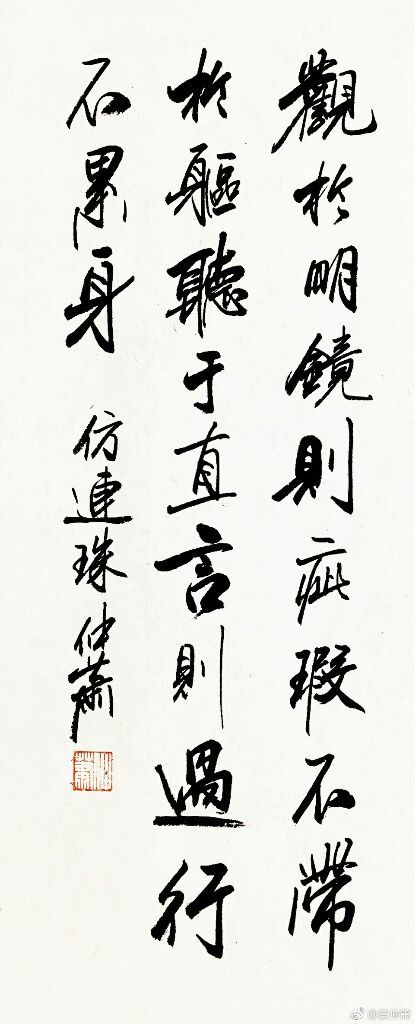 觀於明鏡則疵瑕不滯
於軀聽于直言則過行
不累身 仿連珠 仲蕭